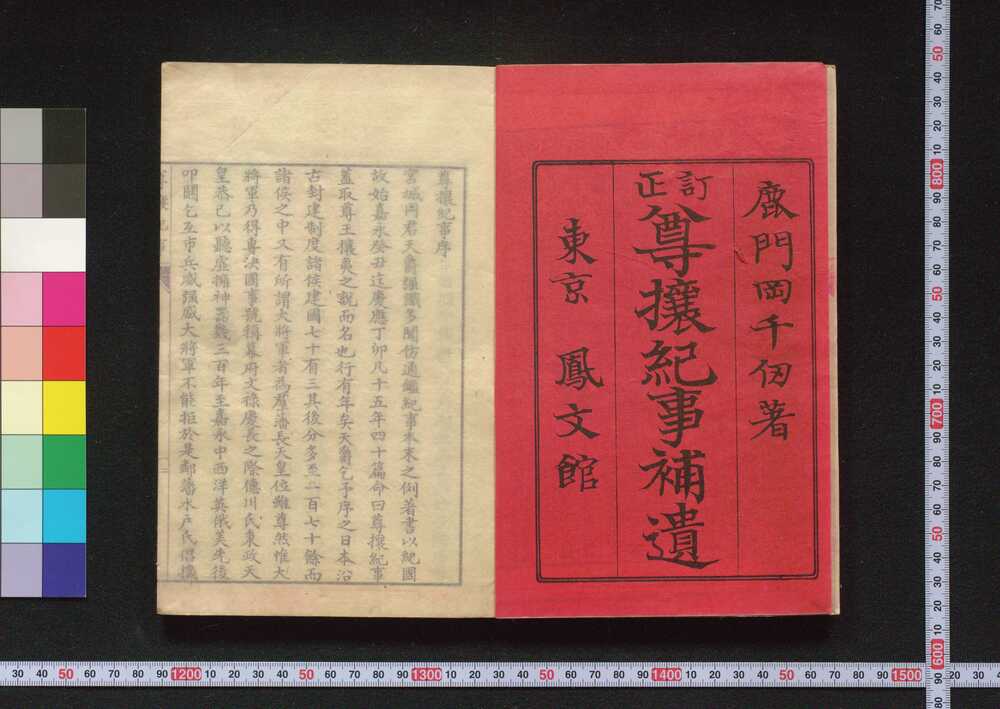 鹿門岡千仭著
訂正
尊攘紀事補遺
東京 鳳文館
尊攘紀事序
宮城岡君天爵强識多聞仿通鑑紀事本末之例著書以紀國
故始嘉永癸丑迄慶應丁卯凡十五年四十篇命曰尊攘紀事
蓋取尊王攘夷之說而名也行有年矣天爵乞予序之日本沿
古封建制度諸侯建國七十有三其後分多至二百七十餘而
諸侯之中又有所謂大將軍者為羣藩長天皇位雖尊然惟大
將軍乃得專決國事號稱幕府文祿慶長之際德川氏秉政天
皇恭己以聽虛擁神器幾三百年至嘉永中西洋英俄美先後
叩關乞互市兵威强盛大將軍不能拒於是鄰藩水戶氏倡攘